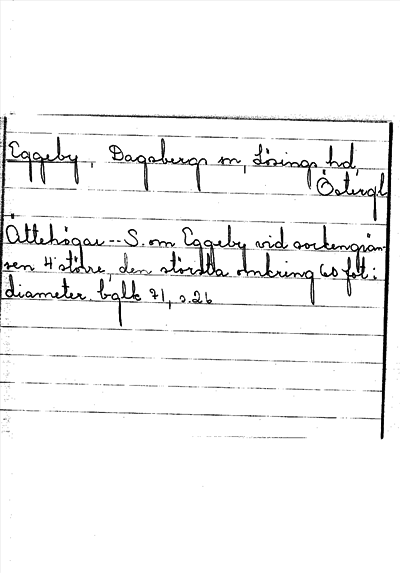 Eggeby, Dagsbergs sn, Lösings hd,
Östergl
Ättehögar -- S. om Eggeby vid sockengrän-
sen 4 större, den största omkring 60 fot i
diameter. bglk 71, s. 26